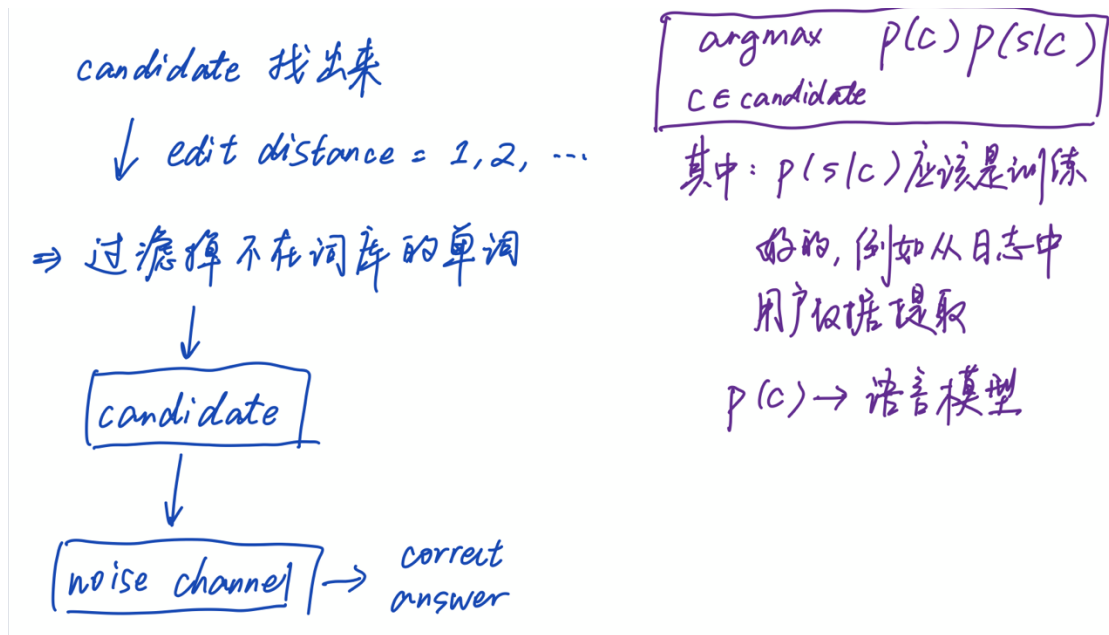 candidate 找出来
edit distance = 1, 2, ...
⇒ 过滤掉不在词库的单词
candidate
noise channel → correct
answer
argmax p(c) p(s|c)
c ∈ candidate
其中: p(s|c) 应该是训练
好的, 例如从日志中
用户数据提取
p(c) → 语言模型